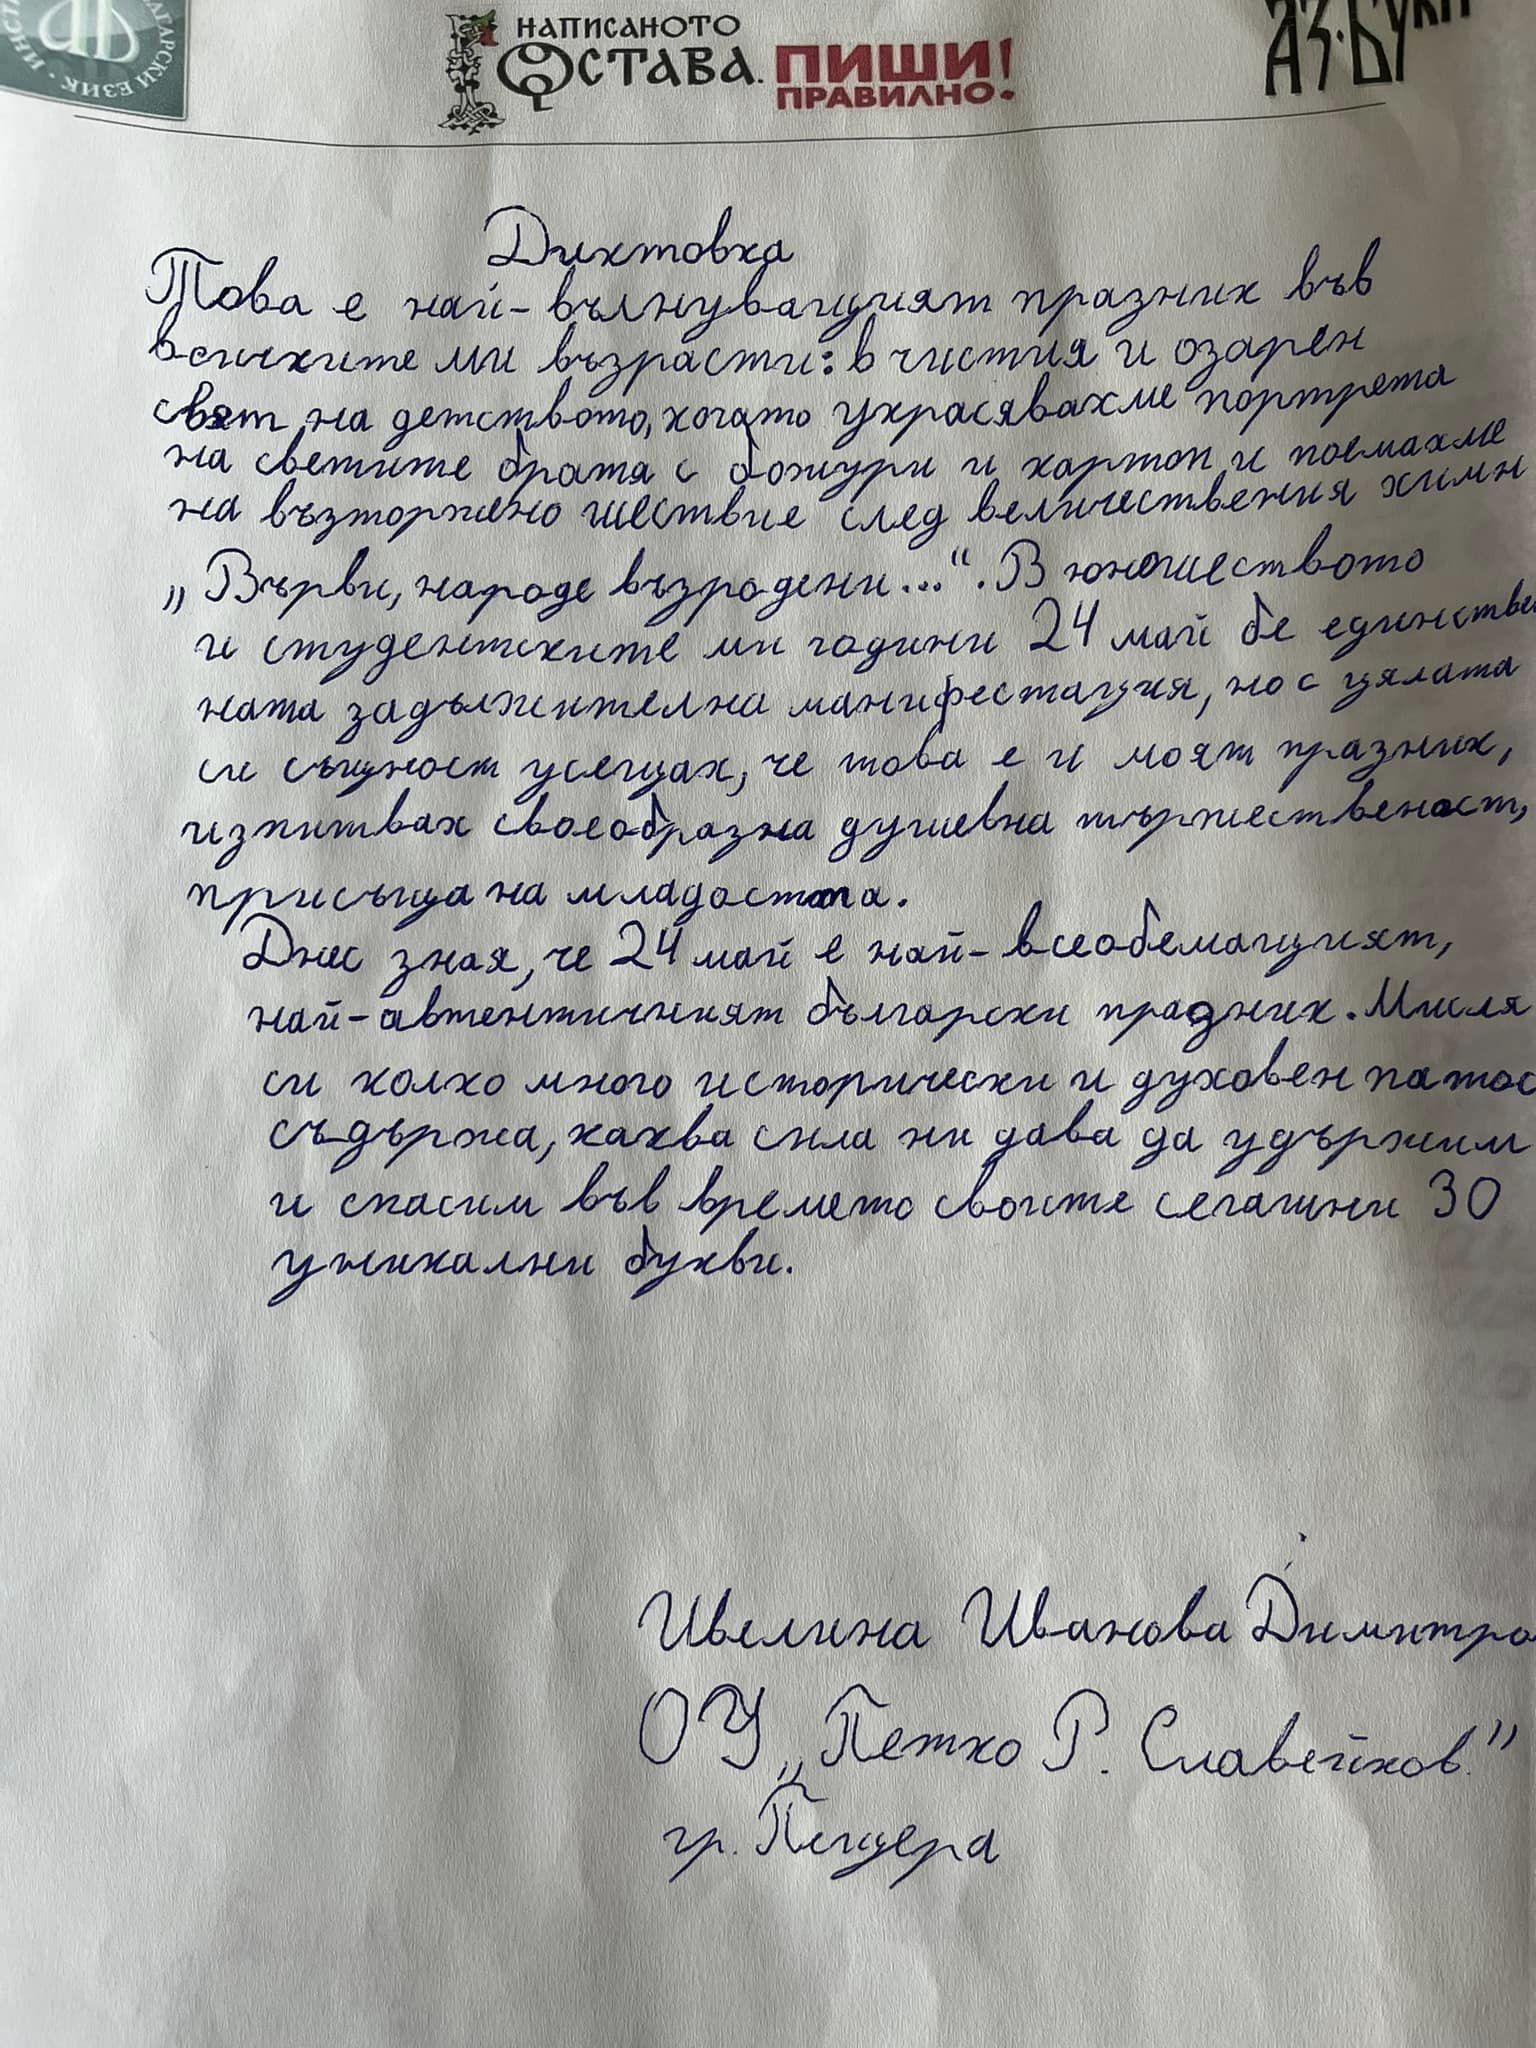 НАПИСАНОТО
ОСТАВА.
ПИШИ!
ПРАВИЛНО!
АЗ·БУКИ
БЪЛГАРСКИ ЕЗИК · ИНСТ
Диктовка
Това е най-вълнуващият празник във
всичките ми възрасти: в чистия и озарен
свят на детството, когато украсявахме портрета
на светите братя с божури и картон и поемахме
на възторжено шествие след величествения химн
„Върви, народе възродени...“. В юношеството
и студентските ми години 24 май бе единствен
ната задължителна манифестация, но с цялата
си същност усещах, че това е и моят празник,
изпитвах своеобразна душевна тържественост,
присъща на младостта.
Днес зная, че 24 май е най-всеобемащият,
най-автентичният български празник. Мисля
си колко много исторически и духовен патос
съдържа, каква сила ни дава да удържим
и спасим във времето своите сегашни 30
уникални букви.
Ивелина Иванова Димитро
ОУ „Петко Р. Славейков.”
гр. Пещера